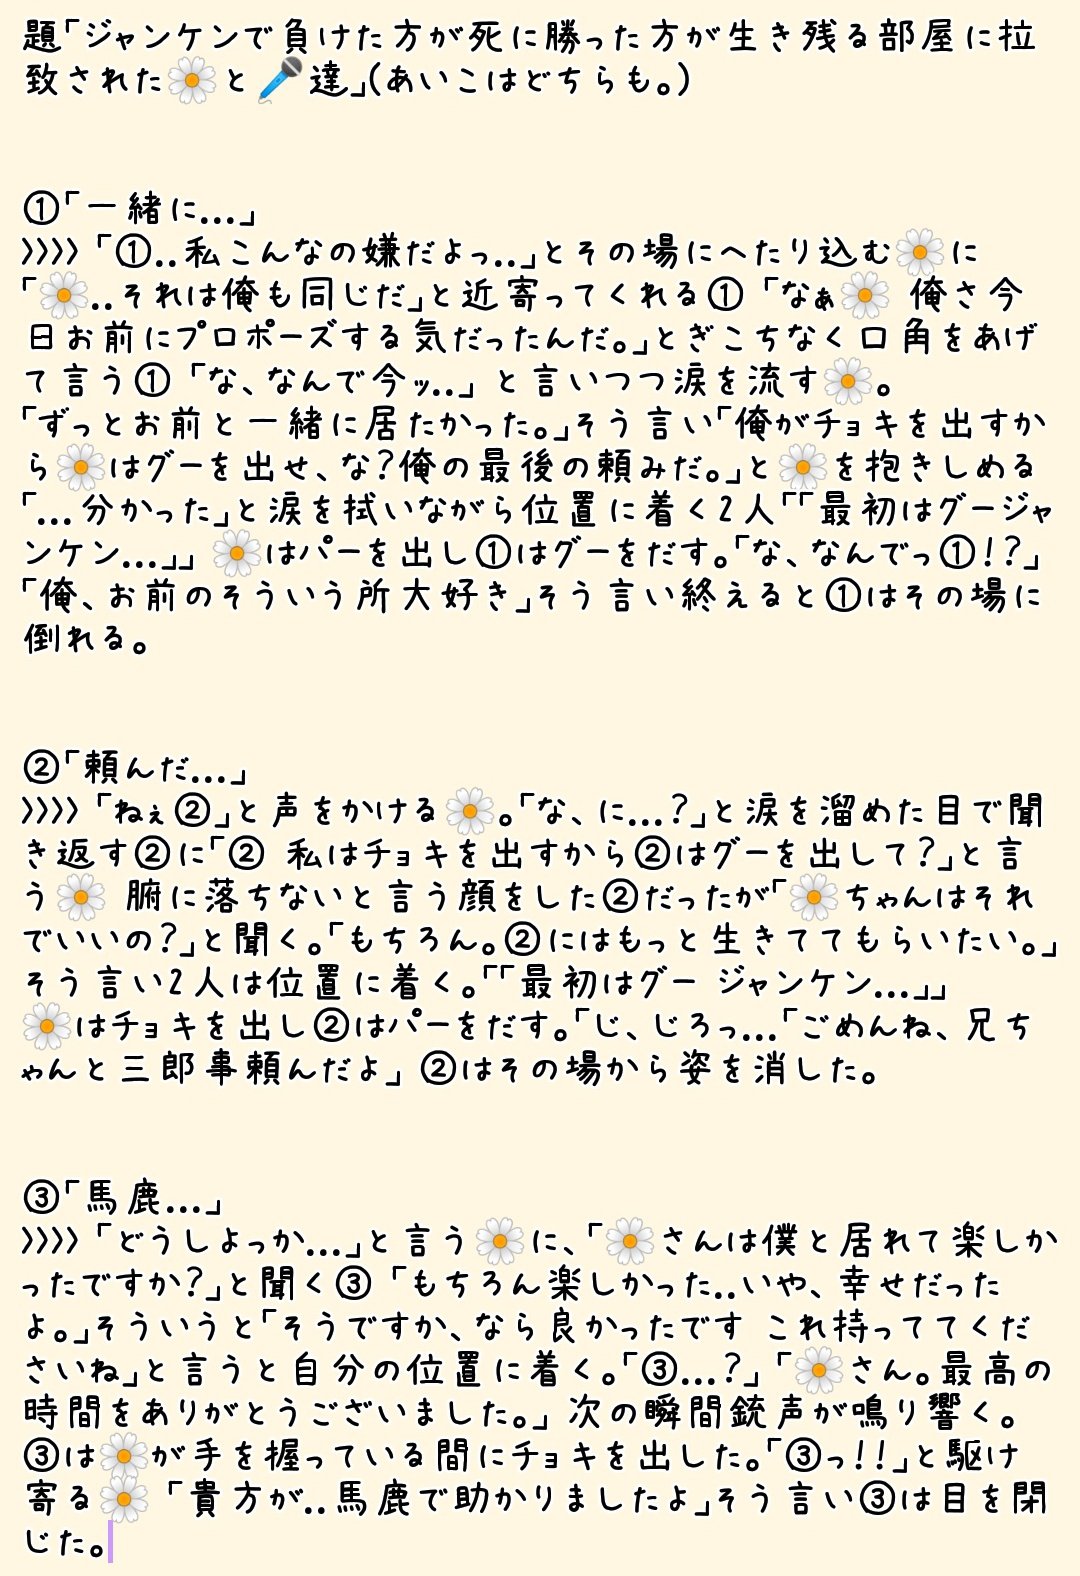 題「ジャンケンで負けた方が死に勝った方が生き残る部屋に拉
致された🌼と🎤達」(あいこはどちらも。)
①「一緒に...」
》》「①..私こんなの嫌だよっ..」とその場にへたり込む🌼に
「🌼..それは俺も同じだ」と近寄ってくれる①「なぁ🌼 俺さ今
日お前にプロポーズする気だったんだ。」とぎこちなく口角をあげ
て言う①「な、なんで今ッ..」と言いつつ涙を流す🌼。
「ずっとお前と一緒に居たかった。」そう言い「俺がチョキを出すか
ら🌼はグーを出せ、な?俺の最後の頼みだ。」と🌼を抱きしめる
「...分かった」と涙を拭いながら位置に着く2人「「最初はグージャ
ンケン...」」🌼はパーを出し①はグーをだす。「な、なんでっ①!?」
「俺、お前のそういう所大好き」そう言い終えると①はその場に
倒れる。
②「頼んだ...」
》》「ねぇ②」と声をかける🌼。「な、に...?」と涙を溜めた目で聞
き返す②に「② 私はチョキを出すから②はグーを出して?」と言
う🌼 腑に落ちないと言う顔をした②だったが「🌼ちゃんはそれ
でいいの?」と聞く。「もちろん。②にはもっと生きててもらいたい。」
そう言い2人は位置に着く。「「最初はグー ジャンケン...」」
🌼はチョキを出し②はパーをだす。「じ、じろっ...「ごめんね、兄ち
ゃんと三郎事頼んだよ」②はその場から姿を消した。
③「馬鹿...」
》》「どうしよっか...」と言う🌼に、「🌼さんは僕と居れて楽しか
ったですか?」と聞く③「もちろん楽しかった..いや、幸せだった
よ。」そういうと「そうですか、なら良かったです これ持っててくだ
さいね」と言うと自分の位置に着く。「③...?」「🌼さん。最高の
時間をありがとうございました。」次の瞬間銃声が鳴り響く。
③は🌼が手を握っている間にチョキを出した。「③っ!!」と駆け
寄る🌼「貴方が..馬鹿で助かりましたよ」そう言い③は目を閉
じた。